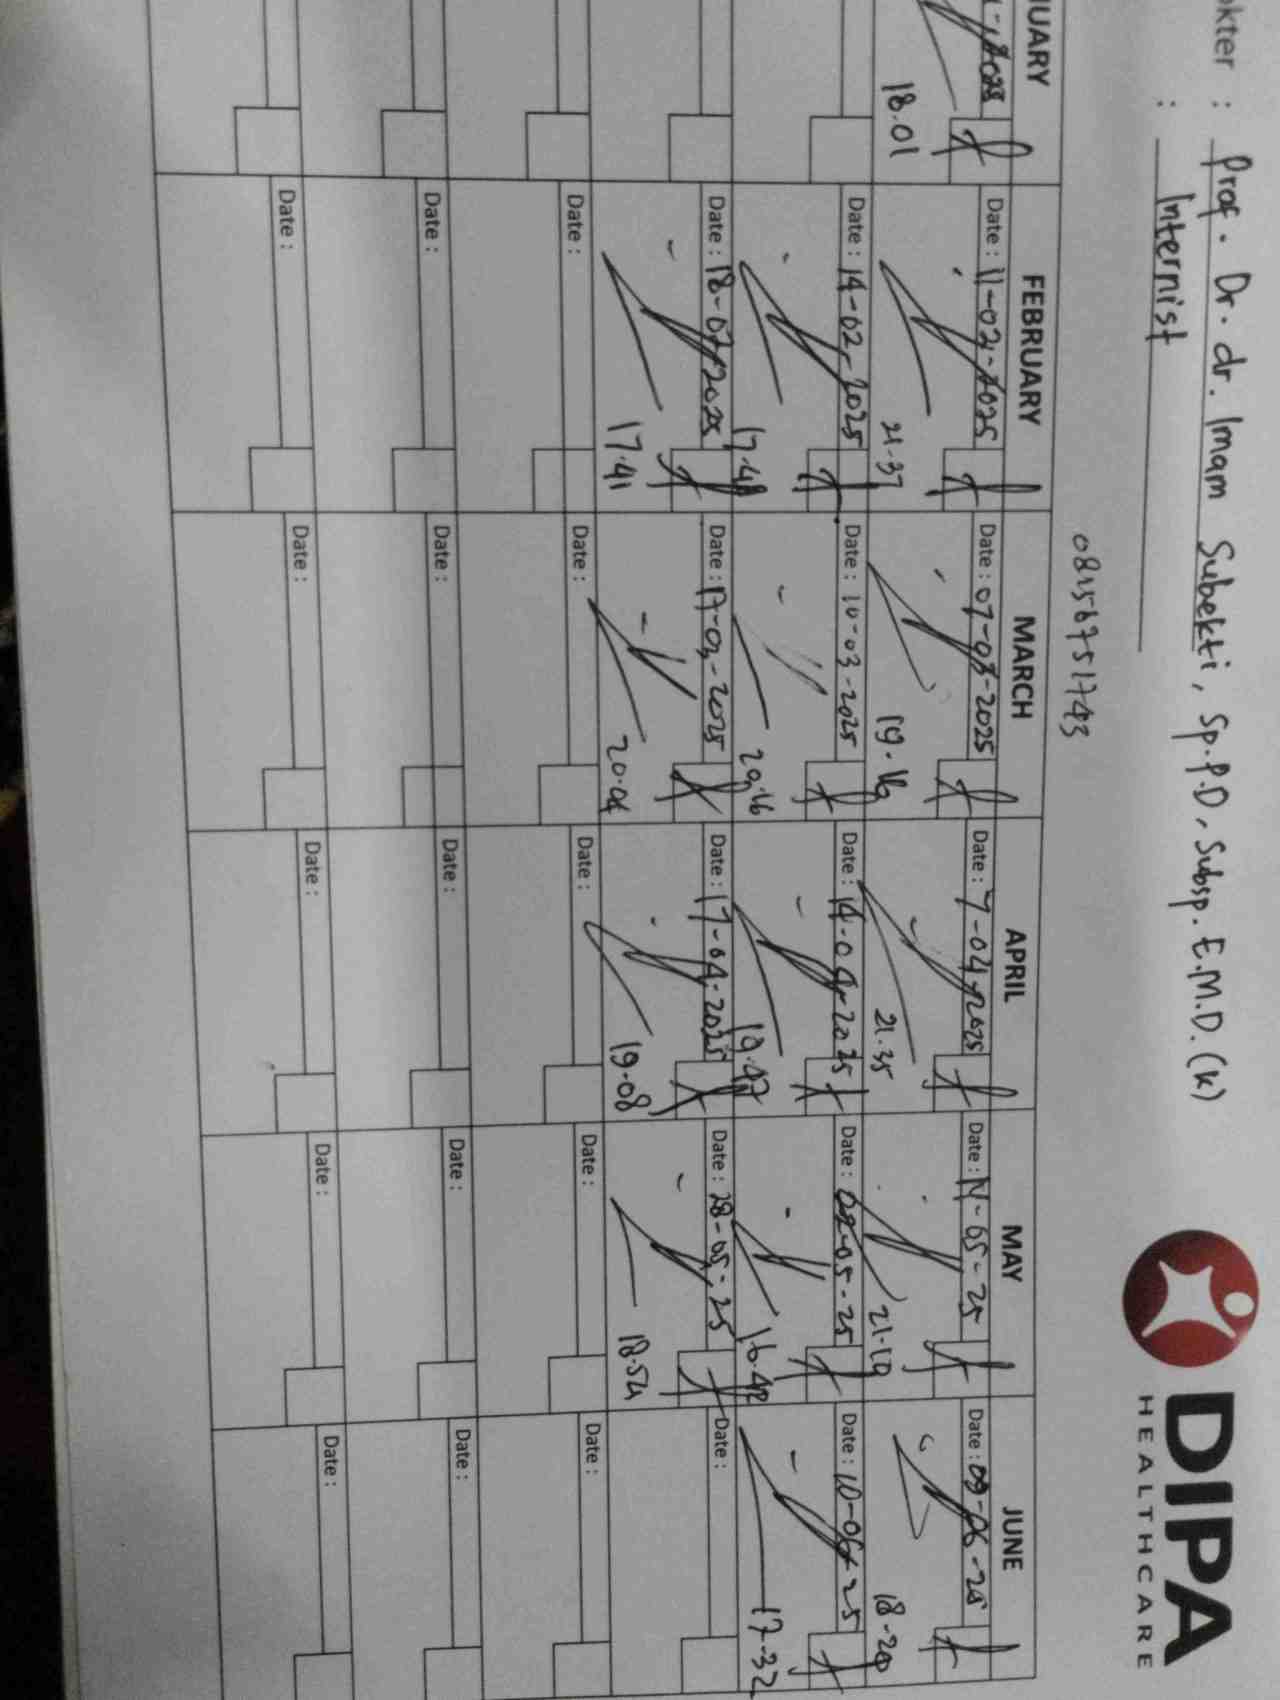 DIPA
HEALTHCARE
okter : Prof. Dr. dr. Imam Subekti, Sp.P.D, Subsp. E.M.D. (K)
: Internist
08156751743
UARY FEBRUARY MARCH APRIL MAY JUNE
Date : 11-02-2025 Date : 07-03-2025 Date : 7-04-2025 Date : 05-25 Date : 09-06-25
18.01 21.37 19.16 21.35 21.19 18-20
Date : 14-02-2025 Date : 10-03-2025 Date : 14-04-2025 Date : 05-25 Date : 10-06-25
17.48 20.16 19.47 16.42 17-32
Date : 18-02-2025 Date : 17-03-2025 Date : 17-04-2025 Date : 28-05-25 Date :
17.41 20.04 19.08 18.54
Date : Date : Date : Date : Date :
Date : Date : Date : Date : Date :
Date : Date : Date : Date : Date :